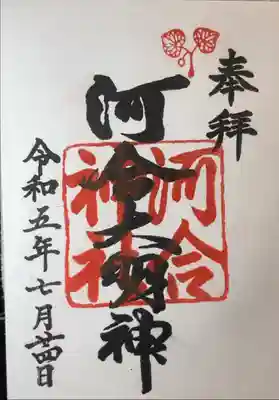 奉拝
河合大明神
河合
神社
令和五年七月廿四日